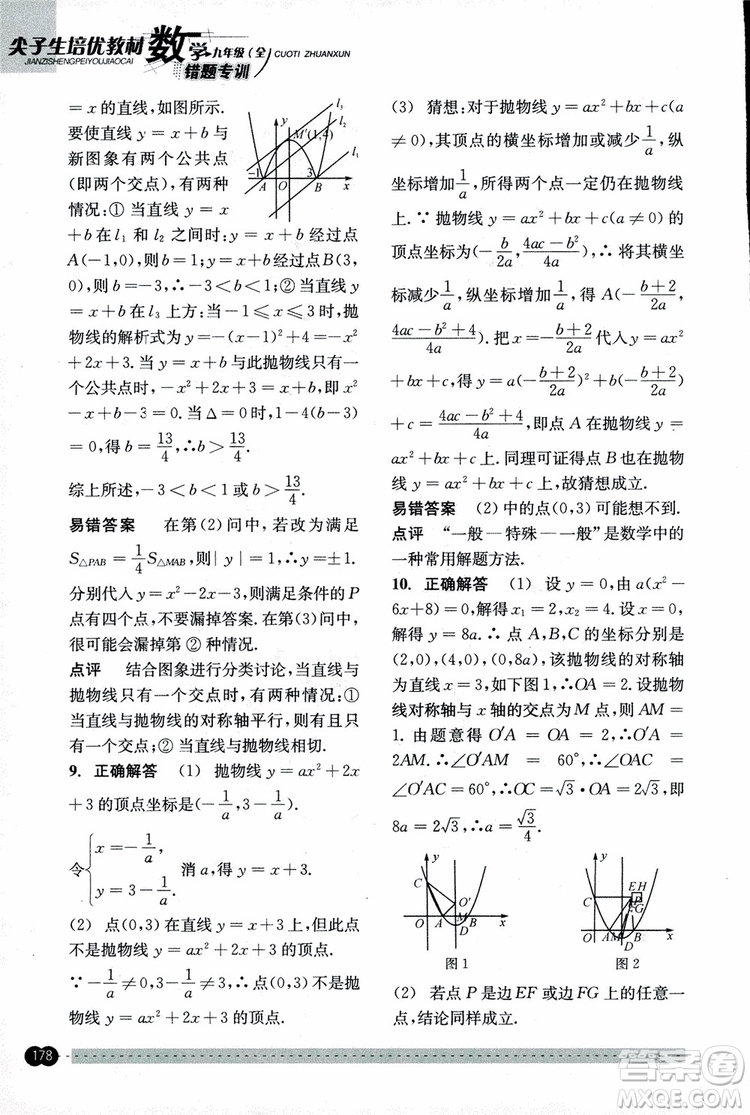 尖子生培优教材 数学 九年级(全) CUOTI ZHUANXUN
JIANZISHENGPEIYOUJIAOCAI 错题专训
=x的直线,如图所示.
要使直线 y=x+b 与
新图象有两个公共点
(即两个交点),有两种
情况:① 当直线 y=
x+b 在 l₁ 和 l₂ 之间时:直线 y=x+b 经过点
A(-1,0),则 b=1;直线 y=x+b 经过点B(3,
0),则 b=-3,∴-3<b<1;② 当直线 y=x
+b 在 l₃ 上方:当-1≤x≤3时,抛
物线的解析式为 y=-(x-1)²+4=-x²
+2x+3. 当 y=x+b 与此抛物线只有一
个公共点时,-x²+2x+3=x+b,即 x²
-x+b-3=0. 当 Δ=0 时,1-4(b-3)
=0,得 b=13/4,∴b>13/4.
综上所述,-3<b<1或b>13/4.
易错答案 在第(2)问中,若改为满足
S△PAB=1/4 S△MAB,则|y|=1,∴y=±1.
分别代入 y=x²-2x-3,则满足条件的 P
点有四个点,不要漏掉答案. 在第(3)问中,
很可能会漏掉第 ② 种情况.
点评 结合图象进行分类讨论,当直线与
抛物线只有一个交点时,有两种情况:①
当直线与抛物线的对称轴平行,则有且只
有一个交点;② 当直线与抛物线相切.
9. 正确解答 (1) 抛物线 y=ax²+2x
+3 的顶点坐标是(-1/a,3-1/a).
令{x=-1/a, y=3-1/a. 消 a,得 y=x+3.
(2) 点(0,3)在直线 y=x+3 上,但此点
不是抛物线 y=ax²+2x+3 的顶点.
∵-1/a≠0,3-1/a≠3,∴点(0,3)不是抛
物线 y=ax²+2x+3 的顶点.
y l₃ l₂ M′(1,4) l₁ -1 3 A O B x
(3) 猜想:对于抛物线 y=ax²+bx+c(a
≠0),其顶点的横坐标增加或减少1/a,纵
坐标增加1/a,所得两个点一定仍在抛物线
上.∵ 抛物线 y=ax²+bx+c(a≠0)的
顶点坐标为(-b/2a,(4ac-b²)/4a),∴将横坐
标减少1/a,纵坐标增加1/a,得 A(-(b+2)/2a,
(4ac-b²+4)/4a).把 x=-(b+2)/2a代入 y=ax²
+bx+c,得 y=a(-(b+2)/2a)²+b(-(b+2)/2a)
+c=(4ac-b²+4)/4a,即点 A 在抛物线 y=
ax²+bx+c 上. 同理可证得点 B 在抛物
线 y=ax²+bx+c 上,故猜想成立.
易错答案 (2) 中的点(0,3)可能想不到.
点评 “一般—特殊—一般”是数学中的
一种常用解题方法.
10. 正确解答 (1) 设 y=0,由a(x²-
6x+8)=0,解得x₁=2,x₂=4. 设 x=0,
解得 y=8a.∴ 点 A,B,C 的坐标分别是
(2,0),(4,0),(0,8a),该抛物线的对称轴
为直线 x=3,如下图1,∴OA=2. 设抛物
线对称轴与 x 轴的交点为M,则 AM=
1. 由题意得 O′A=OA=2,∴O′A=
2AM,∴∠O′AM=60°,∴∠OAC=
∠O′AC=60°,∴OC=√3·OA=2√3,即
8a=2√3,∴a=√3/4.
y C O′ O A M B D x
图1
y C E H P F G O A M D B x
图2
(2) 若点 P 是边EF 或边FG 上的任意一
点,结论同样成立.
178
答案圈
MXQE.COM